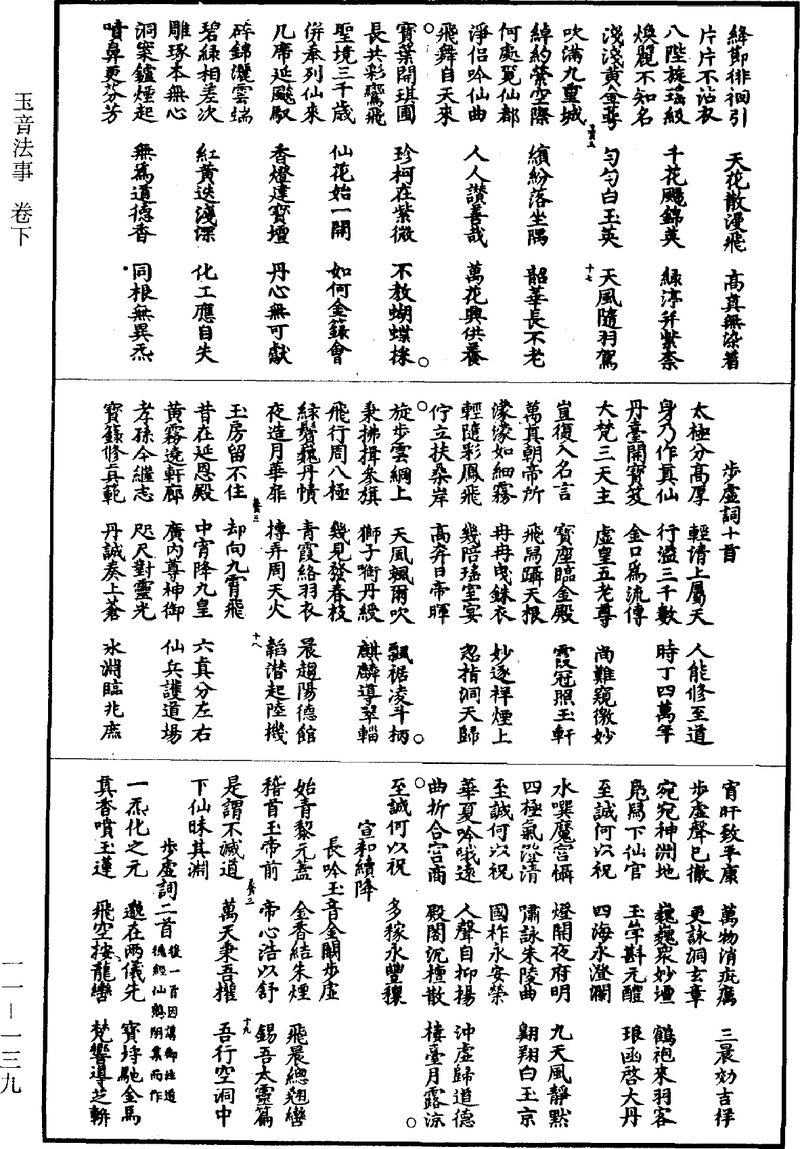 絳節徘徊引　天花散漫飛　高真無染着
片片不沾衣
八陛旋瑤級　千花颺錦英　綠渟幷紫柰
煥麗不知名
淺淺黃金萼　勻勻白玉英　天風隨羽駕
吹滿九重城
綽約縈空際　繽紛落坐隅　韶華長不老
何處覓仙都
淨侶吟仙曲　人人讚善哉　萬花興供養
飛舞自天來
寶葉開琪圃　珍柯在紫微　不教蝴蝶採
長共彩鸞飛
聖境三千歲　仙花始一開　如何金籙會
併奉列仙來
几席延飈馭　香燈達寶壇　丹心無可獻
碎錦灑雲端
碧綠相差次　紅黃迭淺深　化工應自失
雕琢本無心
洞案鑪煙起　無爲道德香　同根無異炁
噴鼻更芬芳
步虛詞十首
太極分高厚　輕清上屬天　人能修至道
身乃作真仙　行溢三千數　時丁四萬年
丹臺開寶笈　金口爲流傳
大梵三天主　虛皇五老尊　尚難窺微妙
豈復入名言　寶座臨金殿　霞冠照玉軒
萬真朝帝所　飛舄躡天根
濛濛如細霧　冉冉曳銖衣　妙逐祥煙上
輕隨彩鳳飛　幾陪瑤室宴　忽指洞天歸
佇立扶桑岸　高奔日帝暉
旋步雲綱上　天風颯爾吹　飄裾凌斗柄
秉拂揖參旗　獅子銜丹綬　麒麟導翠輜
飛行周八極　幾見發春枝
綠鬢巍丹幘　青霞絡羽衣　晨趨陽德館
夜造月華扉　摶弄周天火　韜潛起陸機
玉房留不住　却向九霄飛
昔在延恩殿　中宵降九皇　六真分左右
黃霧遶軒廊　廣內尊神御　仙兵護道場
孝孫今繼志　咫尺對靈光
寶籙修真範　丹誠奏上蒼　氷淵臨兆庶
宵旰致平康　萬物消疵癘　三晨効吉祥
步虛聲已徹　更詠洞玄章
宛宛神洲地　巍巍衆妙壇　鶴袍來羽客
鳧舄下仙官　玉笋斟元醴　琅函啓大丹
至誠何以祝　四海永澄瀾
水噀魔宮懾　燈開夜府明　九天風靜默
四極氣澄清　嘯詠朱陵曲　翱翔白玉京
至誠何以祝　國祚永安榮
華夏吟哦遠　人聲自抑揚　沖虛歸道德
曲折合宮商　殿閣沉檀散　樓臺月露涼
至誠何以祝　多稼永豐穰
宣和續降
長吟玉音金闕步虛
始青黎元蓋　金香結朱煙　飛晨總翹轡
稽首玉帝前　帝心浩以舒　錫吾太靈篇
是謂不滅道　萬天秉吾權　吾行空洞中
下仙昧其淵
步虛詞二首
一炁化之元　邈在两儀先　寶埒馳金馬
真香噴玉蓮　飛空按龍轡　梵響導芝軿
玉音法事　卷下
一一－一三九